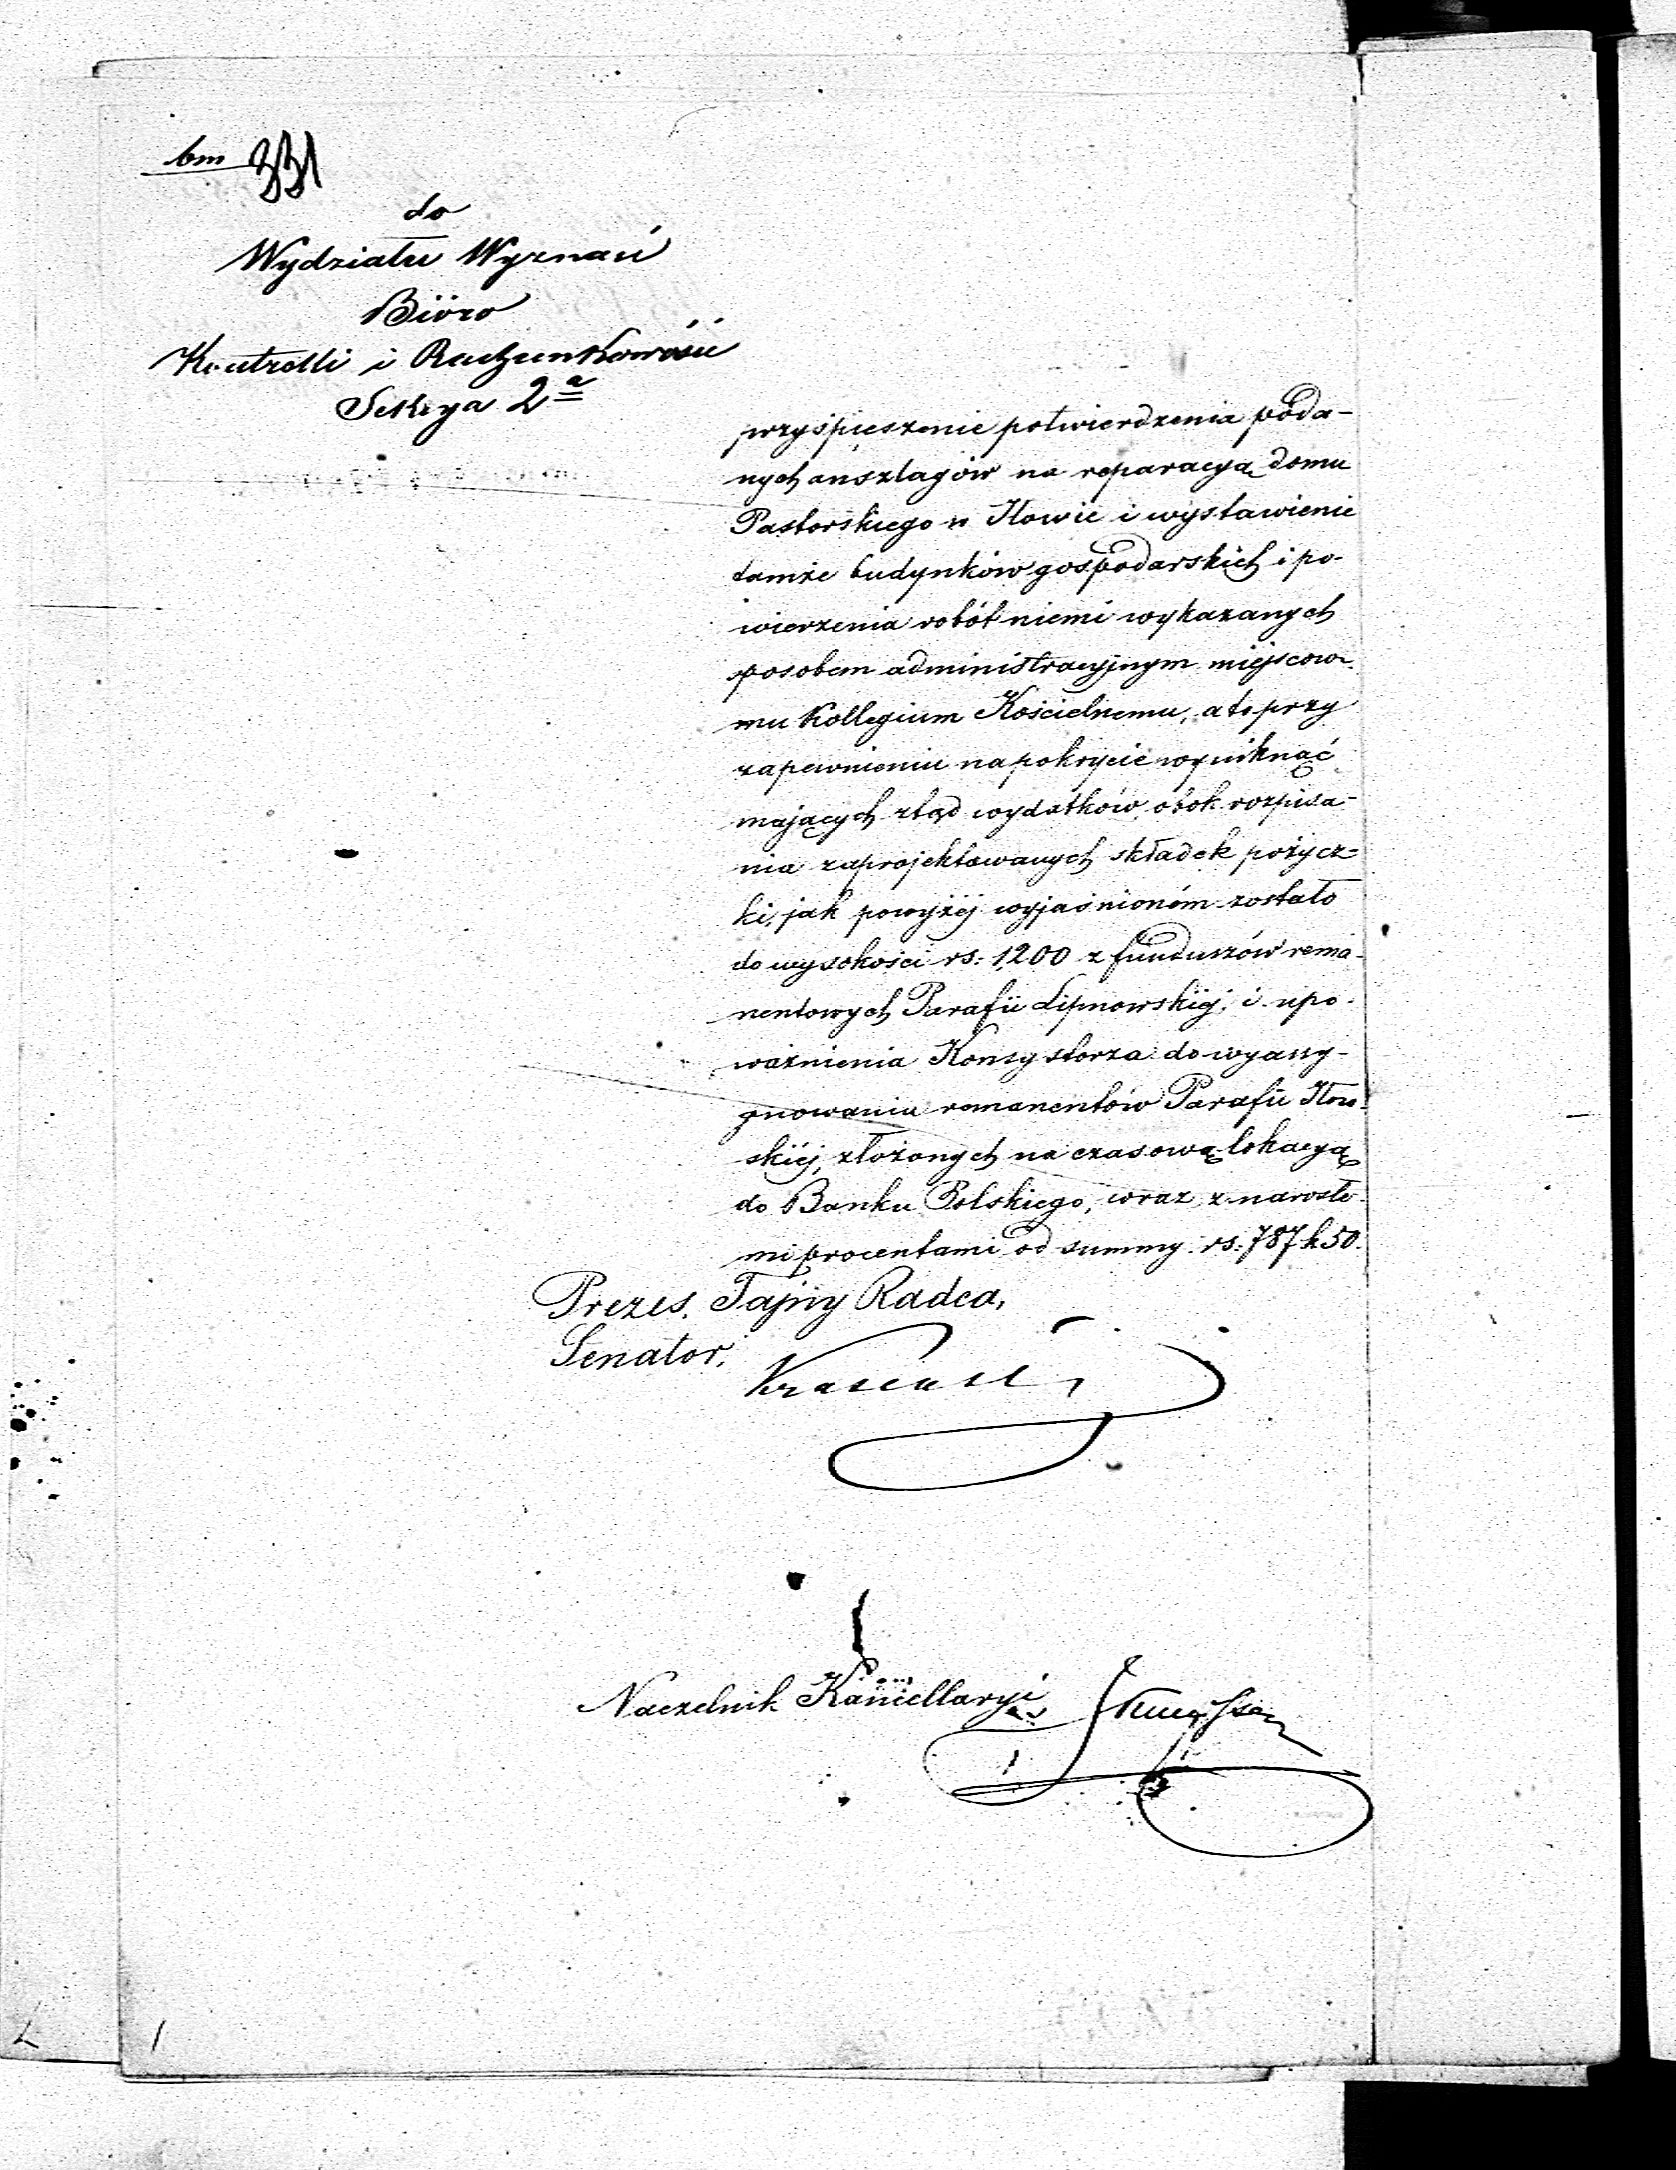 bm 331
do
Wydziału Wyznań
Biöro
Kontrolli i Rachunkowości
Sekcya 2a
przyśpieszenie potwierdzenia poda-
nych anszlagów na reparacyą domu
Pastorskiego w Iłowie i wystawienie
tamże budynków gospodarskich i po-
wierzenia robót niemi wykazanych
sposobem administracyjnym miejscowe-
mu Kollegium Kościelnemu, a to przy
zapewnieniu na pokrycie wyniknąć
mających ztąd wydatków, obok rozpisa-
nia zaprojektowanych składek pożycz-
ki, jak powyżéj wyjaśnioném zostało
do wysokości rs: 1,200 z funduszów rema-
nentowych Parafii Lipnowskiéj; i upo-
ważnienia Konsystorza do wyassy-
gnowania remanentów Parafii Iłow-
skiéj, złożonych na czasową lokacyą
do Banku Polskiego, wraz z narosłe-
mi procentami od summy rs: 787 k 50.
Prezes, Tajny Radca,
Senator,
Naczelnik Kancellaryi
1